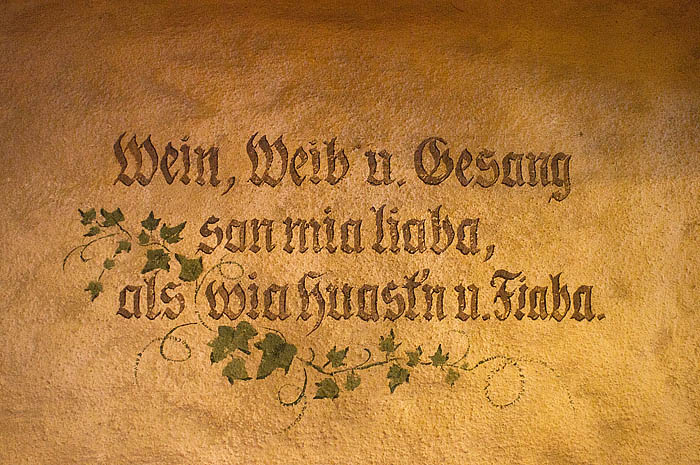 Wein, Weib u. Gesang
san mia liaba,
als wia Huast'n u. Fiaba.